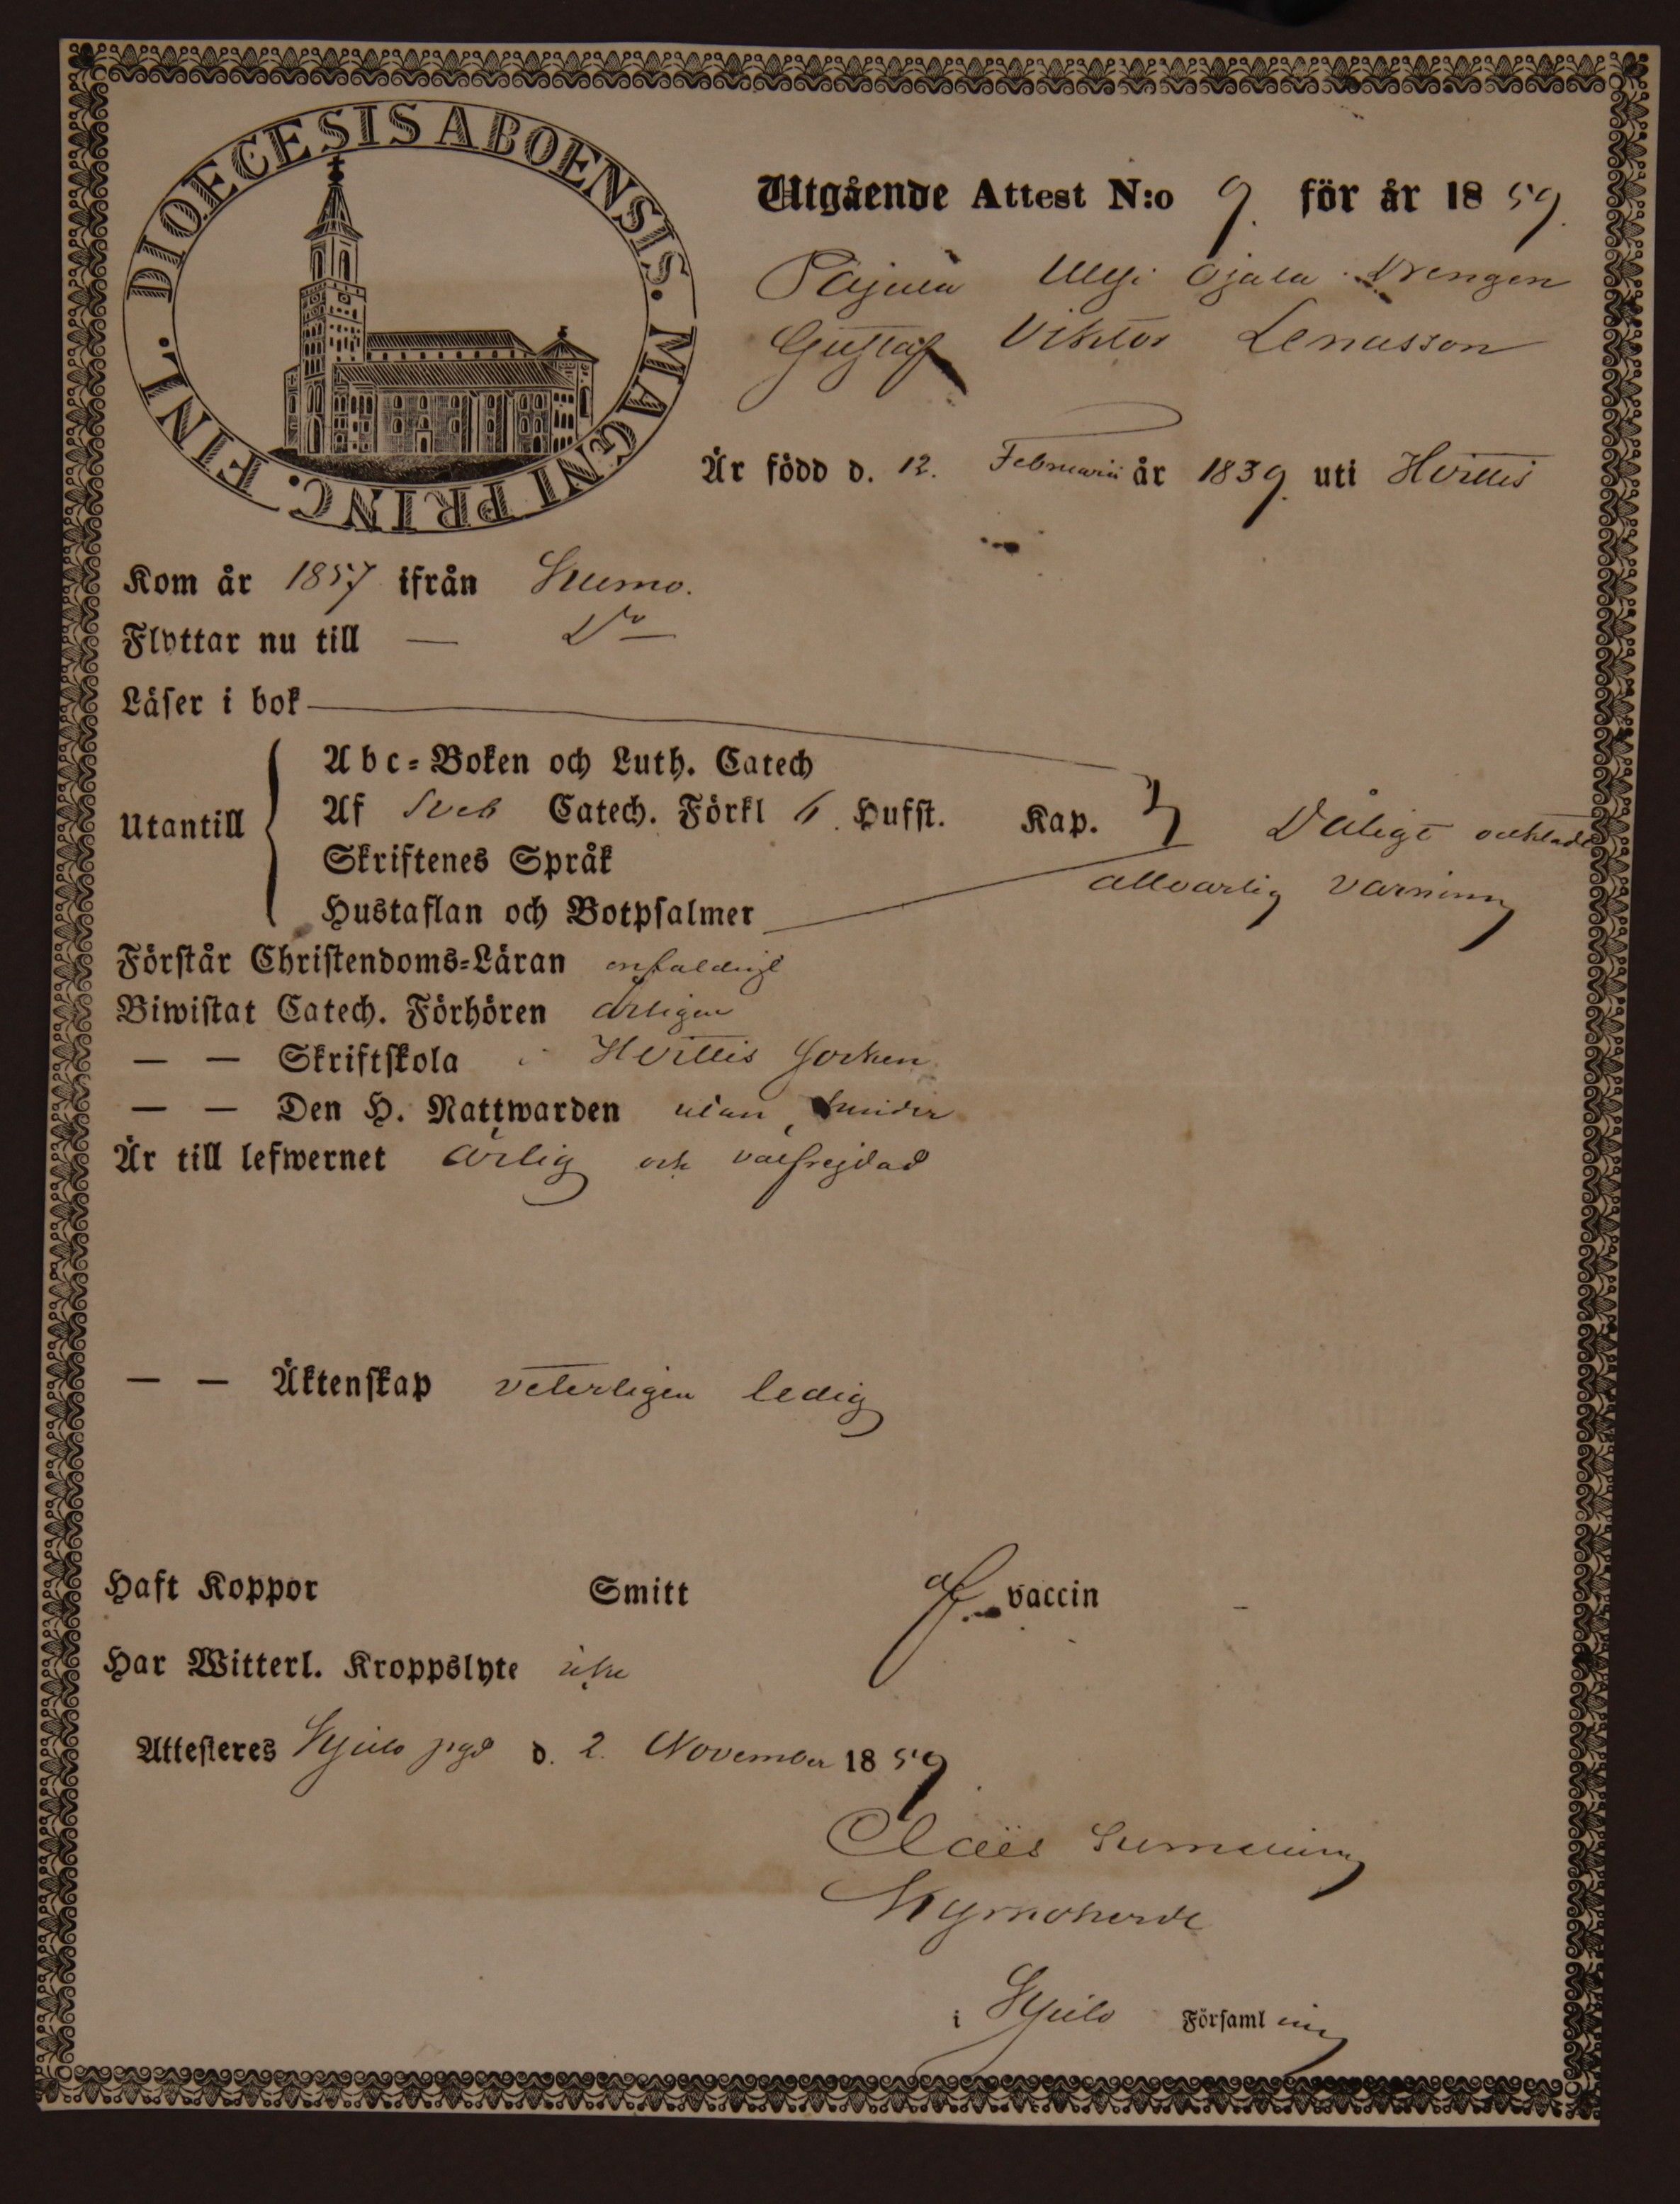 DIOECESIS ABOENSIS. MAGNI PRINC. FINL.
Utgående Attest N:o 9. för år 1859.
Ojala Drengen
Gustaf Viktor Lenusson
Är född d. 12. Februarii år 1839. uti Hvittis
Kom år 1857 ifrån Kumo.
Flyttar nu till — Do
Läser i bok
Abc-Boken och Luth. Catech
Utantill
Af Sveb Catech. Förkl 6. Hufst. Kap. Dåligt och
Skriftenes Språk
allvarlig varning
Hustaflan och Botpsalmer
Förstår Christendoms-Läran enfaldigt
Biwistat Catech. Förhören årligen
— — Skriftskola i Hvittis Socken
— — Den H. Nattwarden utan hinder
Är till lefwernet ärlig och välfrejdad
— — Äktenskap veterligen ledig
Haft Koppor Smitt af vaccin
Har Witterl. Kroppslyte icke
Attesteres Kjulo pgd d. 2. November 1859
Claës
Kyrkoherde
i Kjulo Församling